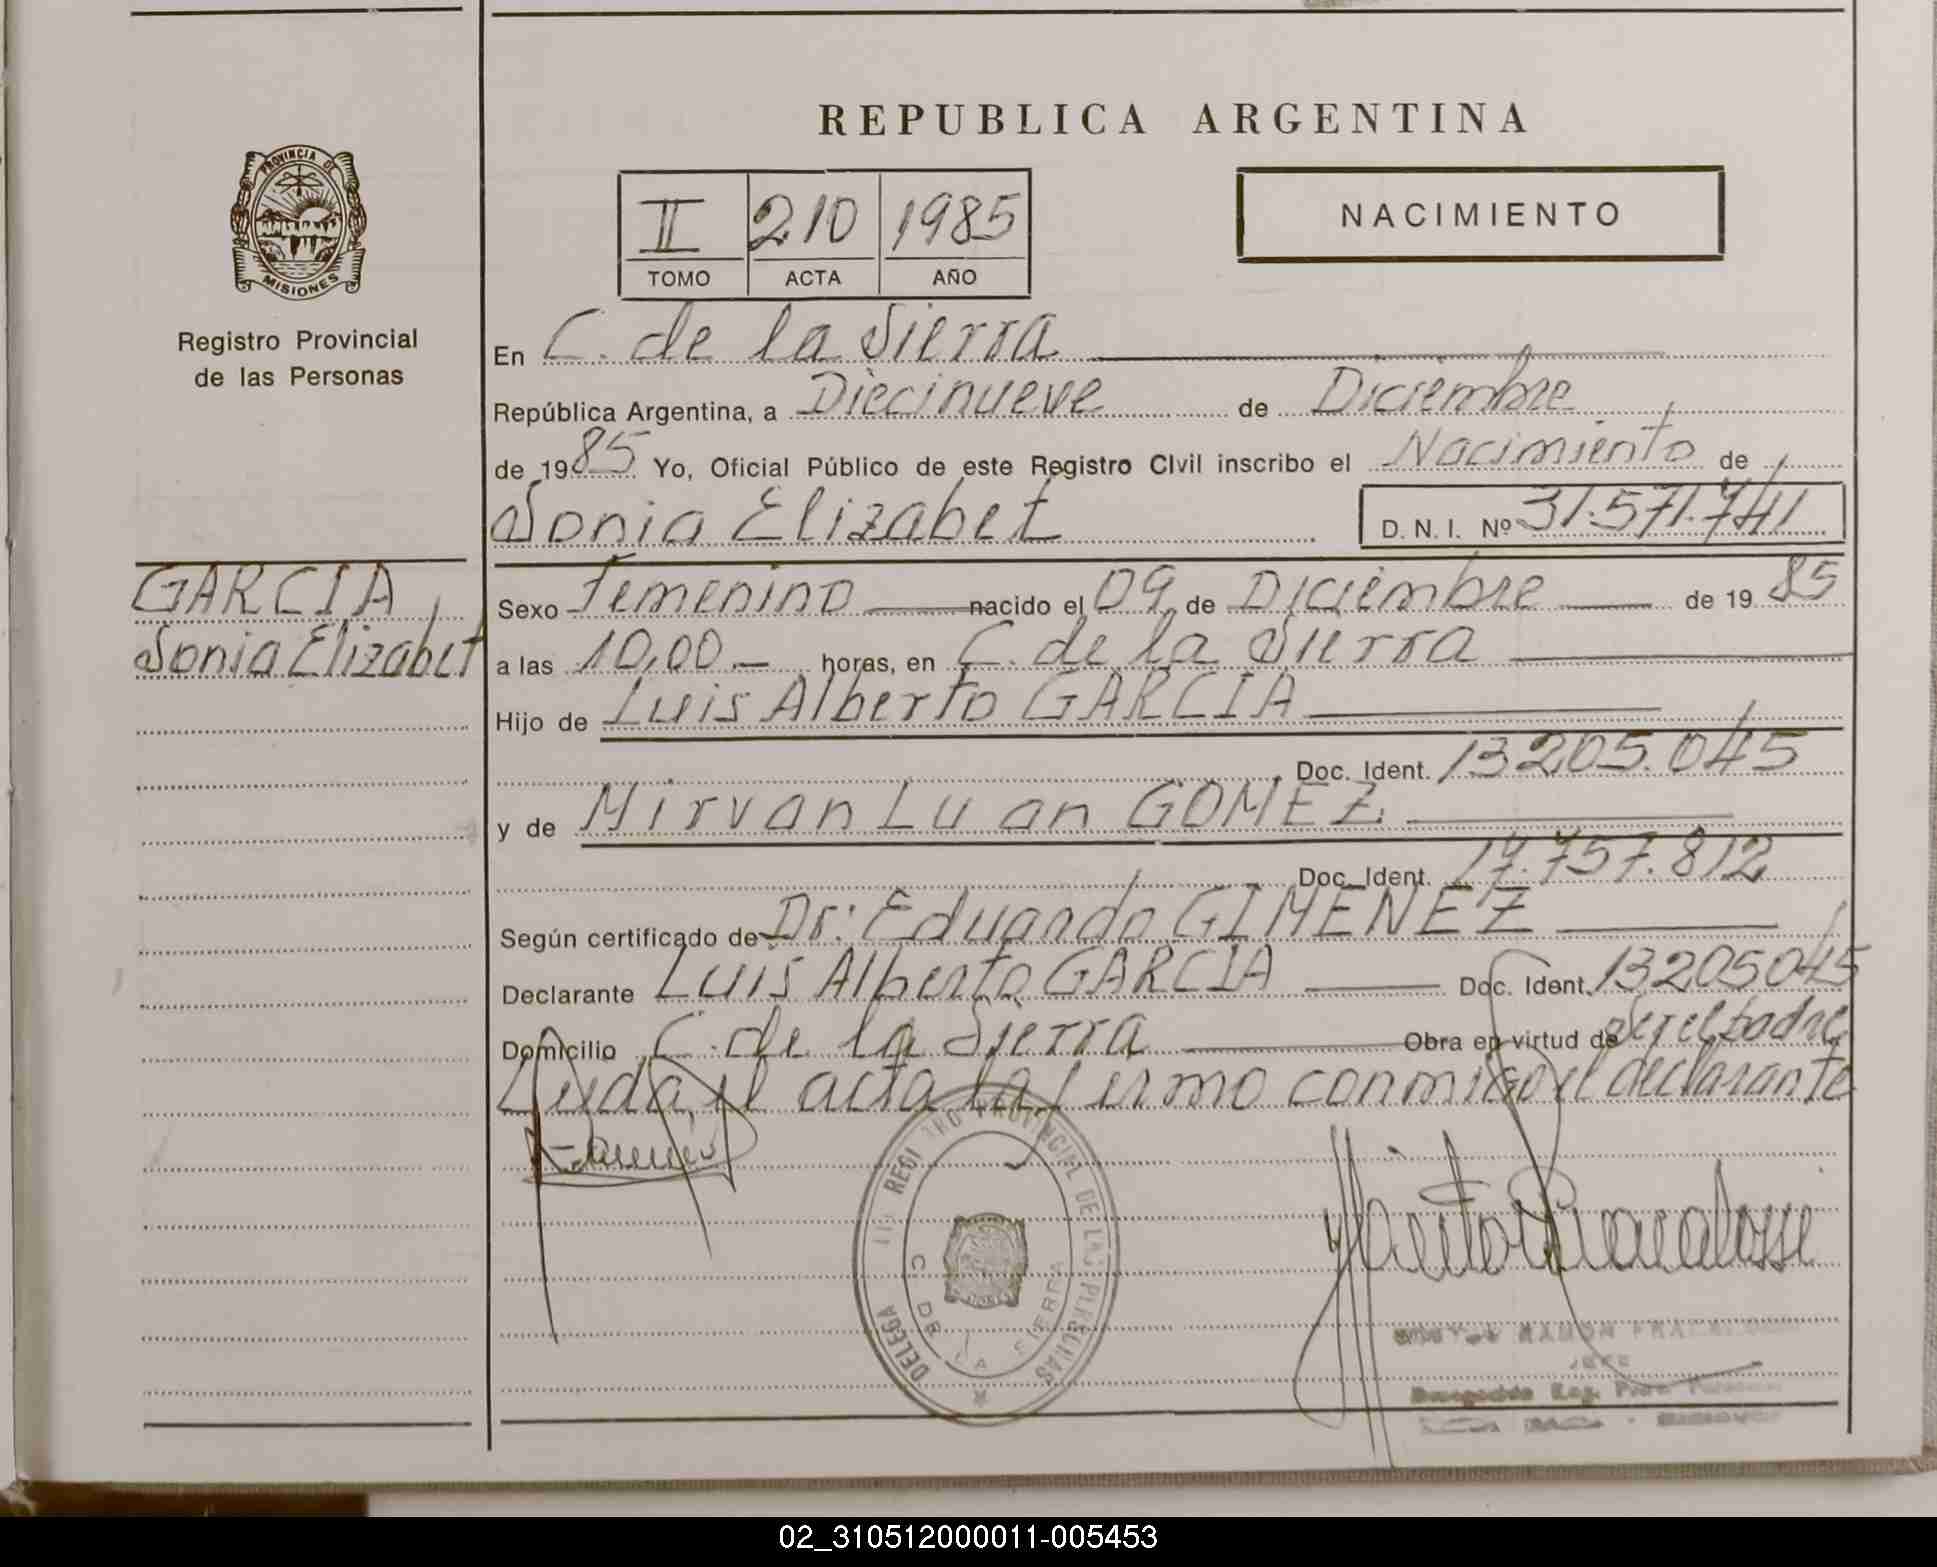 REPUBLICA ARGENTINA
PROVINCIA DE
MISIONES
Registro Provincial
de las Personas
II 210 1985
TOMO ACTA AÑO
NACIMIENTO
En C. de la Sierra
República Argentina, a Diecinueve de Diciembre
de 1985 Yo, Oficial Público de este Registro Civil inscribo el Nacimiento de
Sonia Elizabet D. N. I. Nº 31.571.741
GARCIA,
Sonia Elizabet
Sexo Femenino nacido el 09 de Diciembre de 1985
a las 10,00 horas, en C. de la Sierra
Hijo de Luis Alberto GARCIA
Doc. Ident. 13205.045
y de Mirvan Luan GOMEZ.
Doc. Ident. 17.757.812
Según certificado de Dr: Eduardo GIMENEZ
Declarante Luis Alberto GARCIA Doc. Ident. 13205045
Domicilio C. de la Sierra Obra en virtud de Ser el padre
Leida el acta la firmo conmigo el declarante
REGISTRO PROVINCIAL DE LAS PERSONAS
DELEGA
C. DE LA SIERRA
RAMON
JEFE
02_310512000011-005453